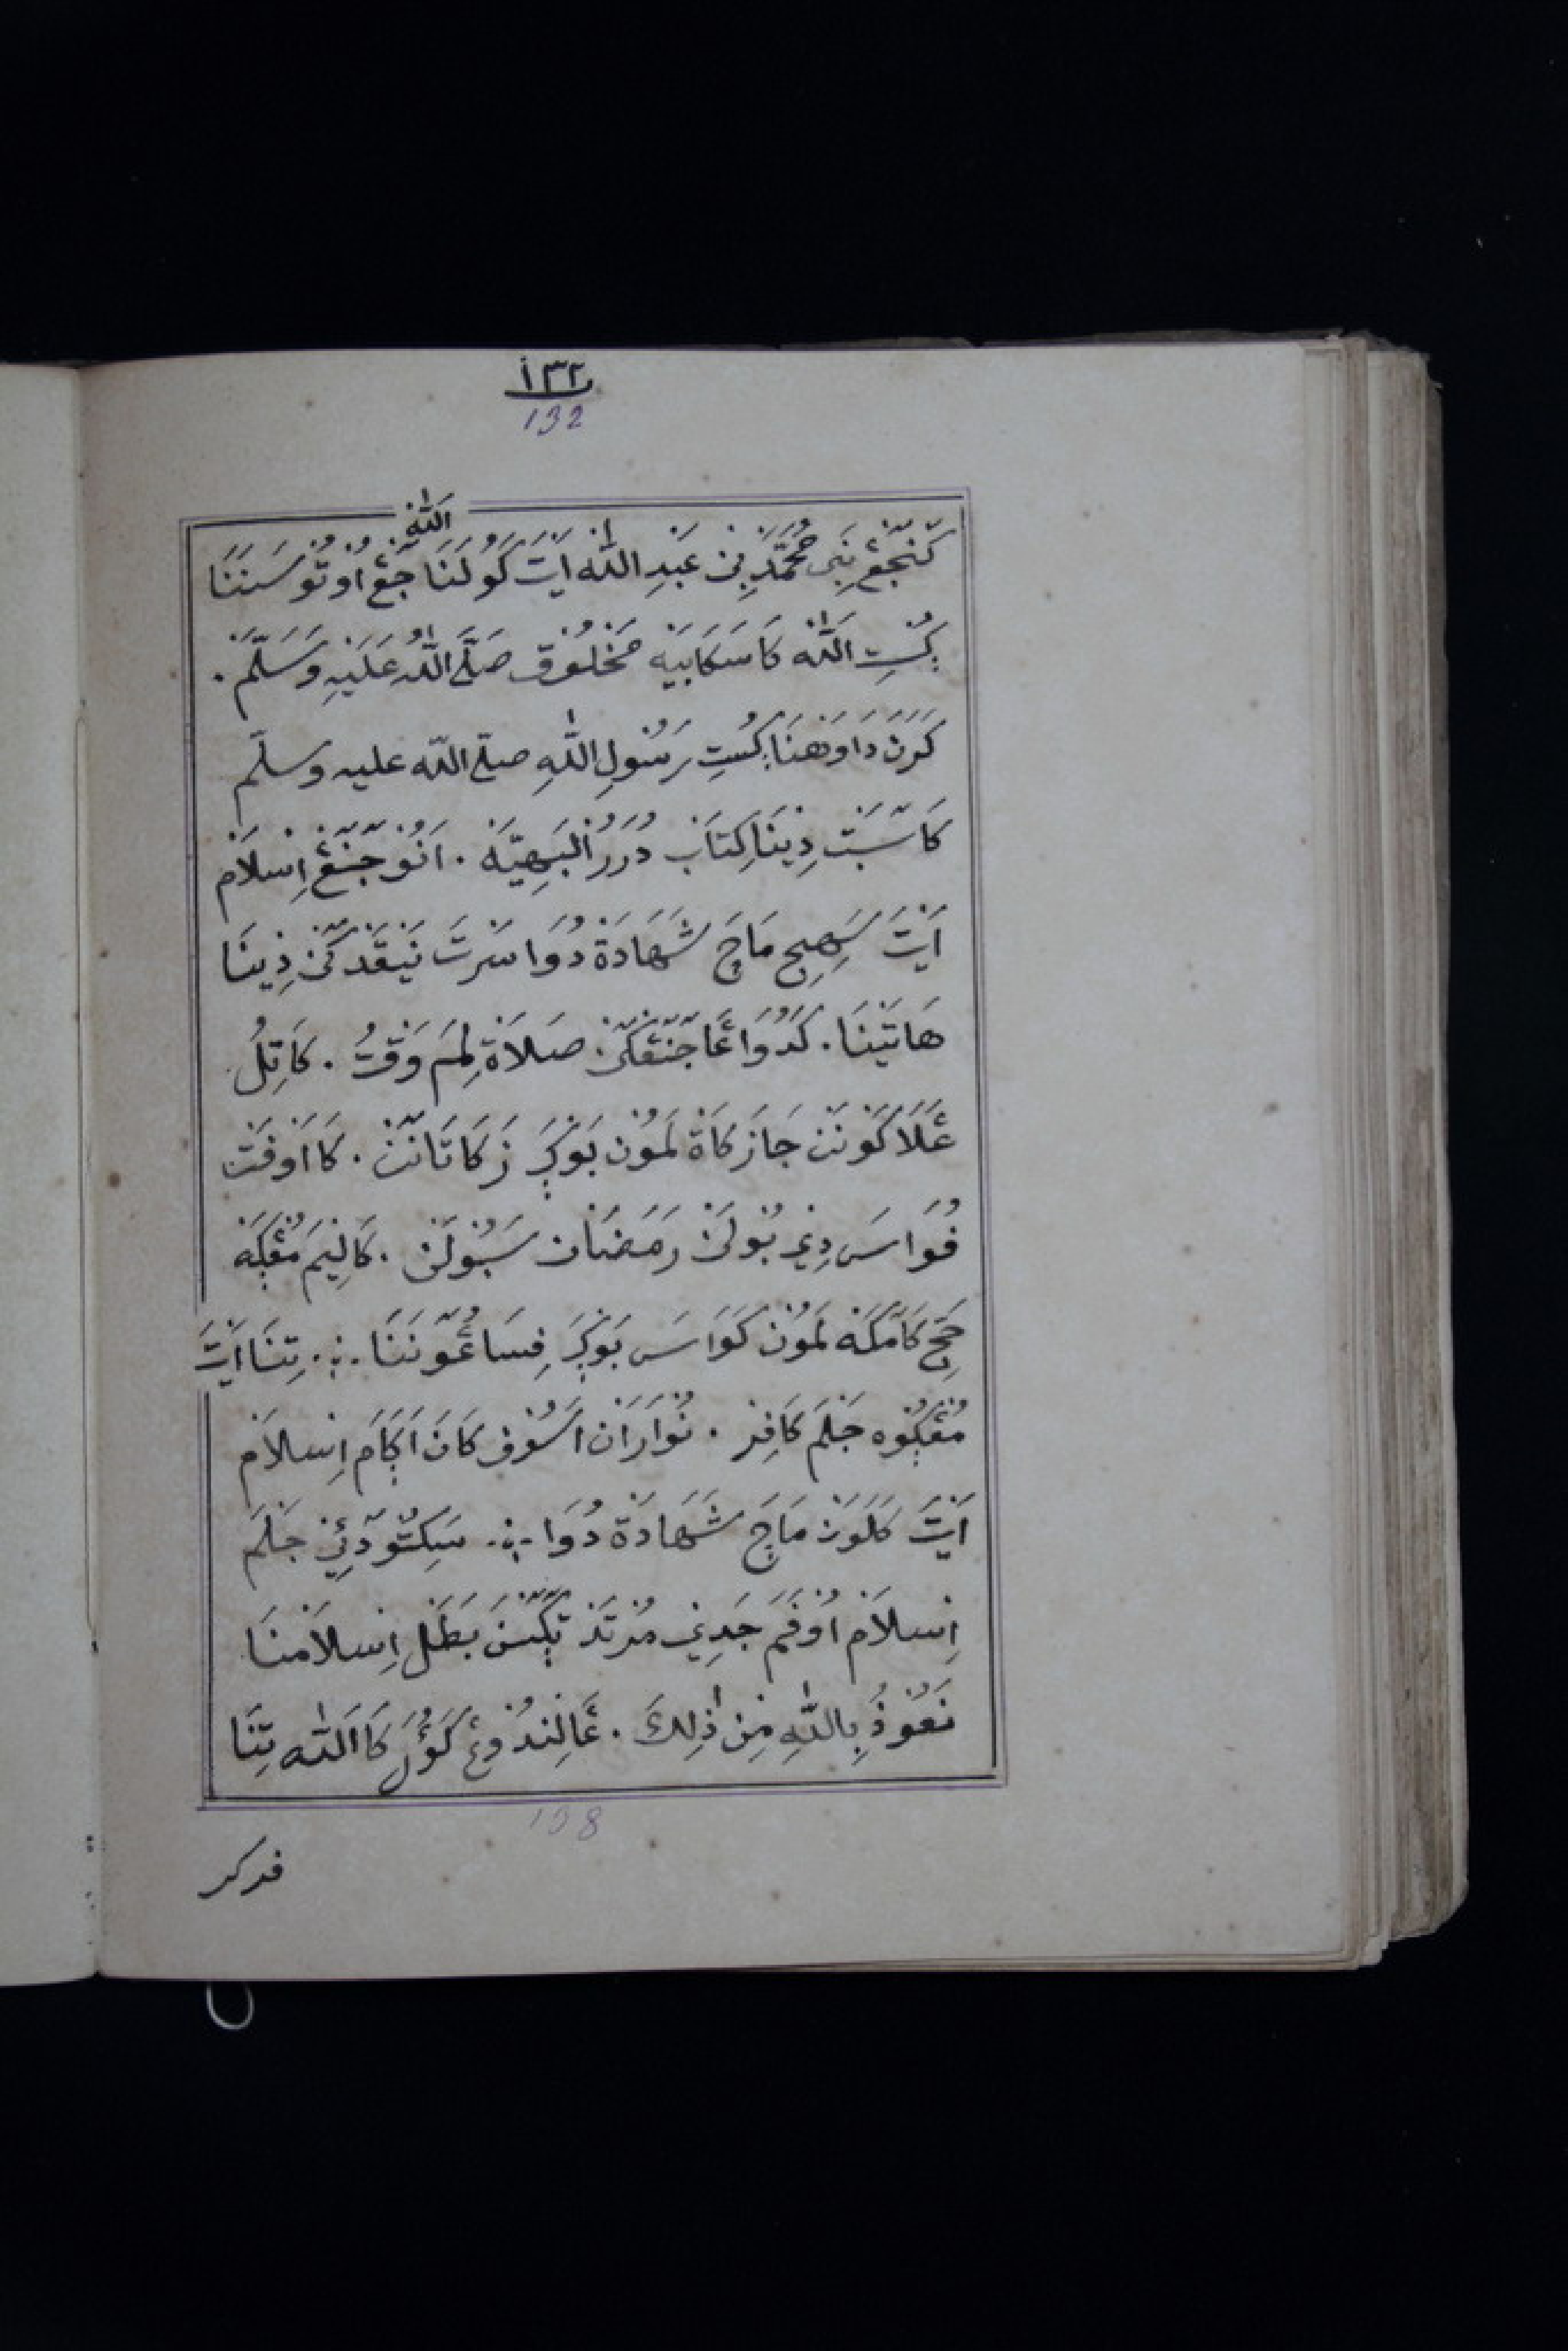 ١٣٢
132
اَللّٰهْ
كَنْجَّڠْ نَبِى مُحَمَّدْ بِنْ عَبْدِ اللّٰهْ اَيْتَ كَوُلَنَا جَّڠْ اُوْتُوْسَنَنَا
بٖݢُسْتِ اَللّٰهْ كَاسَكَابَيْهْ مَخْلُوْقْ صَلَّى اللّٰهُ عَلَيْهِ وَسَلَّمَ .
كَرَنَ دَاوَهْنَا ݢُسْتِ رَسُوْلِ اللّٰهِ صلّى اللّه عليه وسلّم
كَاسَّبَتْ دِيْنَا كِتَابْ دُرَرُ الْبَهِيَّهْ . اَنُوْ جَّنّڠْ اِسْلَامْ
اَيْتَ سَهِيْجِ مَاچَ شَهَادَةْ دُوَا سَرْتَ نَيْقَدْكَّنْ دِيْنَا
هَاتَيْنَا . كَدُوَا عَاجَنّڠْكَّنْ صَلَاةْ لِمَ وَقْتُ . كَاتِلُ
عَلَاكَوْنَنْ جَازَكَاةْ لَمُوْن بَوْݢَ زَكَاتَانّنْ . كَا اَوْفَتْ
فُوَاسَ دِيْ بُوْلَنْ رَمَضَانْ سَبُوْلَنْ . كَالِيْمَ مُڠْݢَهْ
حَجّ كَامَكّهْ لَمُوْنْ كَوَاسَ بَوْݢَ فِسَاعّوْنَنَا ... تِنَا اَيْتَ
مُڠْݢُوْهْ جَلْمَ كَافِرْ . نُوْ ارَانْ اَسُوْفْ كَانَ اَݢَامَ اِسْلَامْ
اَيْتَ كَلَوَنْ مَاچَ شَهَادَةْ دُوَا ... سَݢِتّوْدَئِنْ جَلْمَ
اِسْلَامْ اُوْفَمَ جَدِيْ مُرْتَدْ تݢّسْنَ بَطَلْ اِسْلَامْنَا
نَعُوْذُ بِاللّٰهِ مِنْ ذٰلِكَ . عَالِنْدُوْڠْ كَوُلَ كَا اَللّٰه تِنَا
138
فركر